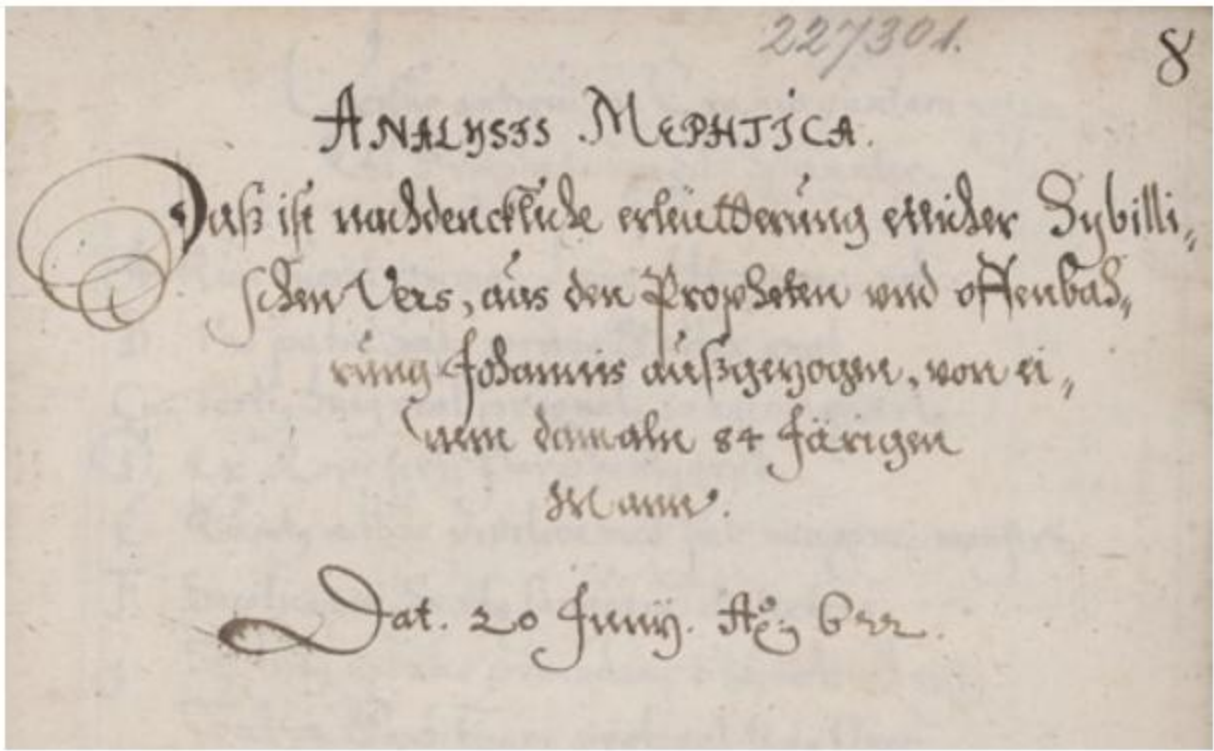 227301.
8
ANALYSIS MEPHTICA.
Daß ist nachdenckliche erleütterung etlicher Sybilli„
schen Vers, aus den Propheten und offenbah„
rung Johannis außgezogen, von ei„
nem damaln 84 Järigen
Mann.
Dat. 20 Junij. Aō 622.